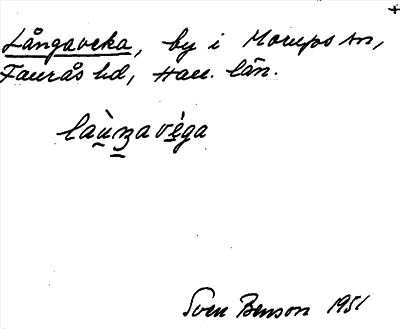 +
Långaveka, by i Morups sn,
Faurås hd, Hall. län.
laùnzavéga
Sven Benson 1951